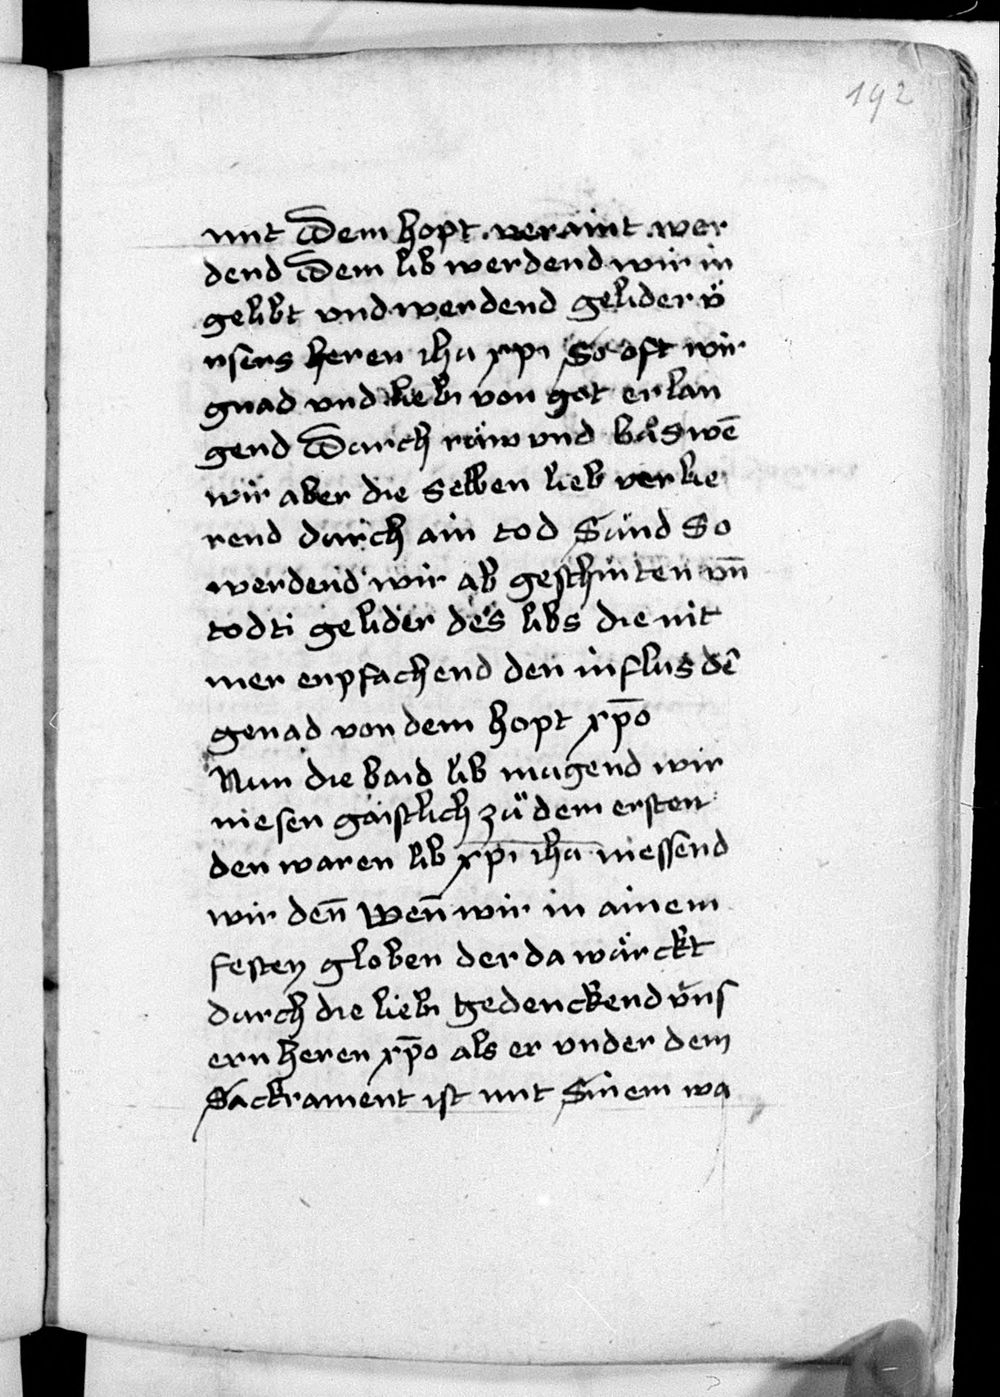 192
mit Dem hopt veraint wer
dend Dem lib werdend wir in
gelibt vnd werdend gelider v̈
nsers heren ihu xpi So oft wir
gnad vnd liebi von got erlan
gend Durch räw vnd bůs wē
wir aber die selben lieb verlie
rend durch ain tod Sünd So
werdend wir ab geschniten vn̄
todti gelider des libs die nit
mer enpfachend den influs dē
genad von dem hopt xp̄o
Nun die baid lib mugend wir
niesen gaistlich zü dem ersten
den waren lib xp̄i ihū niessend
wir den̄ wen̄ wir in ainem
festen globen der da würckt
durch die liebi gedenckend v̈ns
ern heren xp̄o als er vnder dem
Sackrament ist mit Sinem wa